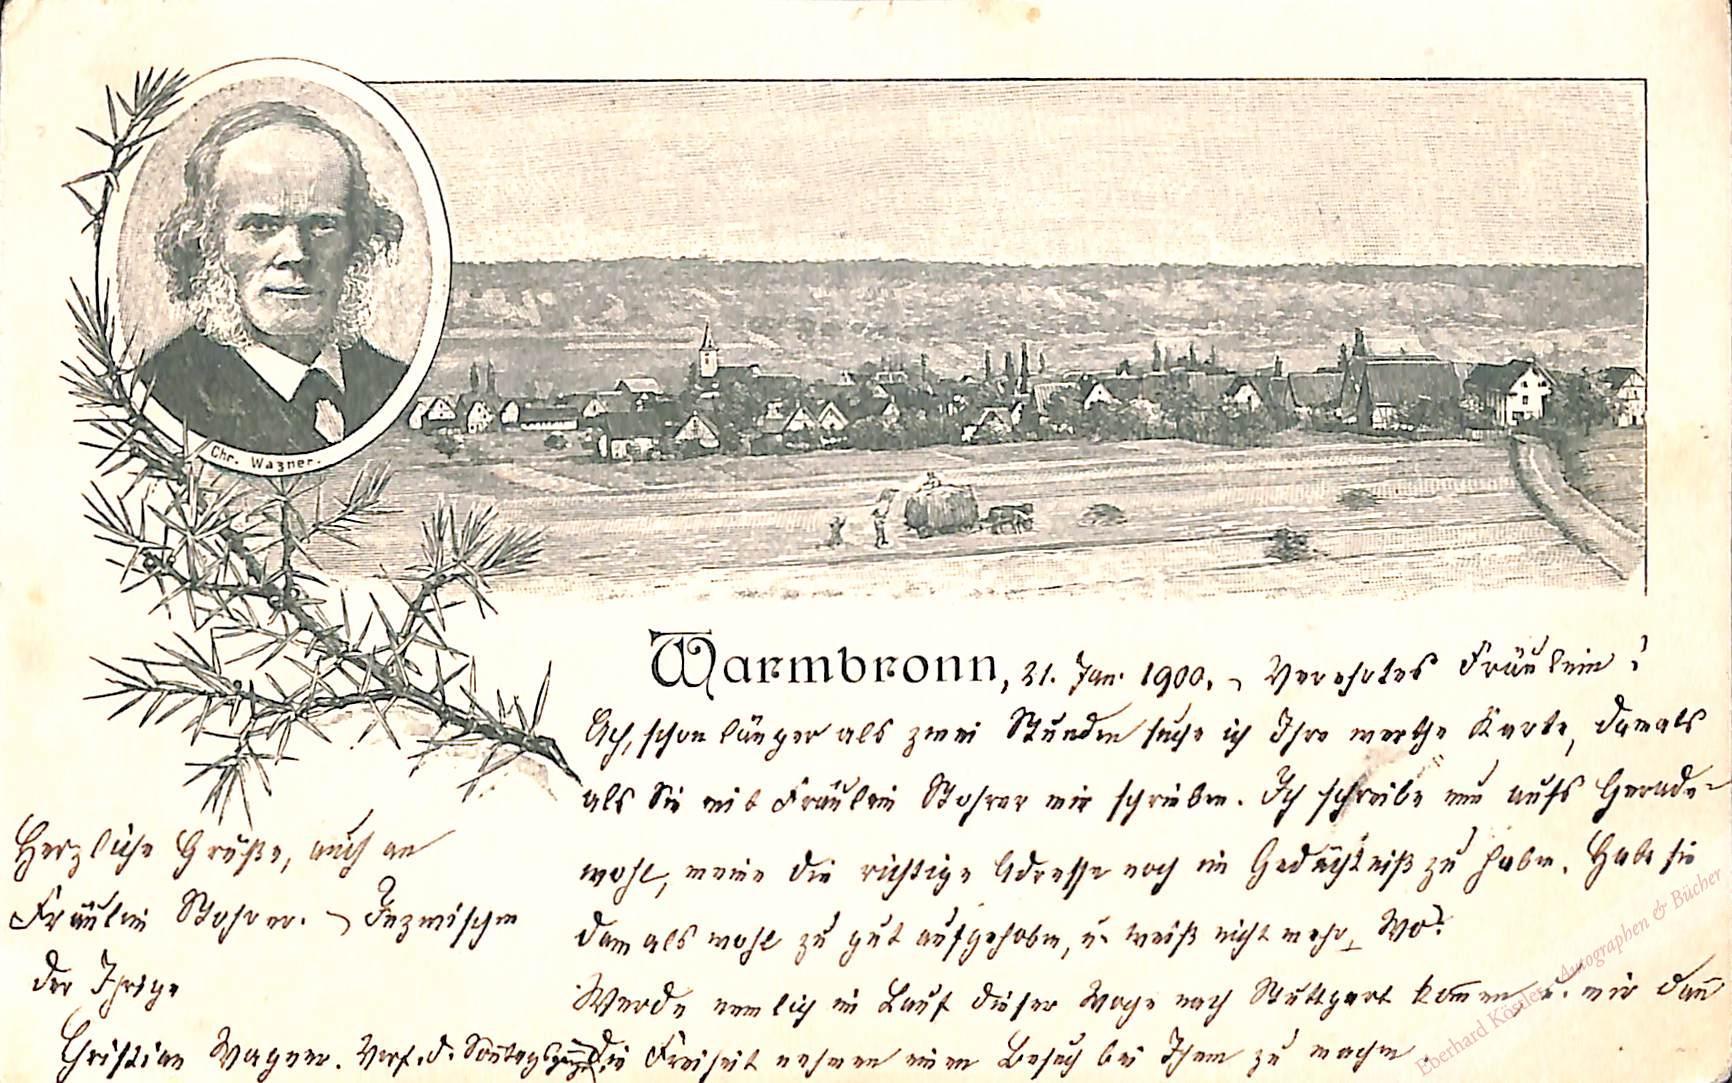 Chr. Wagner.
Warmbronn, 21. Jan. 1900. Verehrtes Fräulein!
Ach, schon länger als zwei Stunden suche ich Ihre werthe Karte, damals
als Sie mit Fräulein Stohrer mir schrieben. Ich schreibe nun aufs Gerade-
wohl, meine die richtige Adresse noch im Gedächtniß zu haben. Habe sie
damals wohl zu gut aufgehoben, u. weiß nicht mehr, Wo?
Werde nemlich im Lauf dieser Woche nach Stuttgart kommen u. mir dann
die Freiheit nehmen einen Besuch bei Ihnen zu machen.
Herzliche Grüße, auch an
Fräulein Stohrer. Inzwischen
der Ihrige
Christian Wagner. Verf. d. Sonntagsgänge
Eberhard Köstler Autographen & Bücher